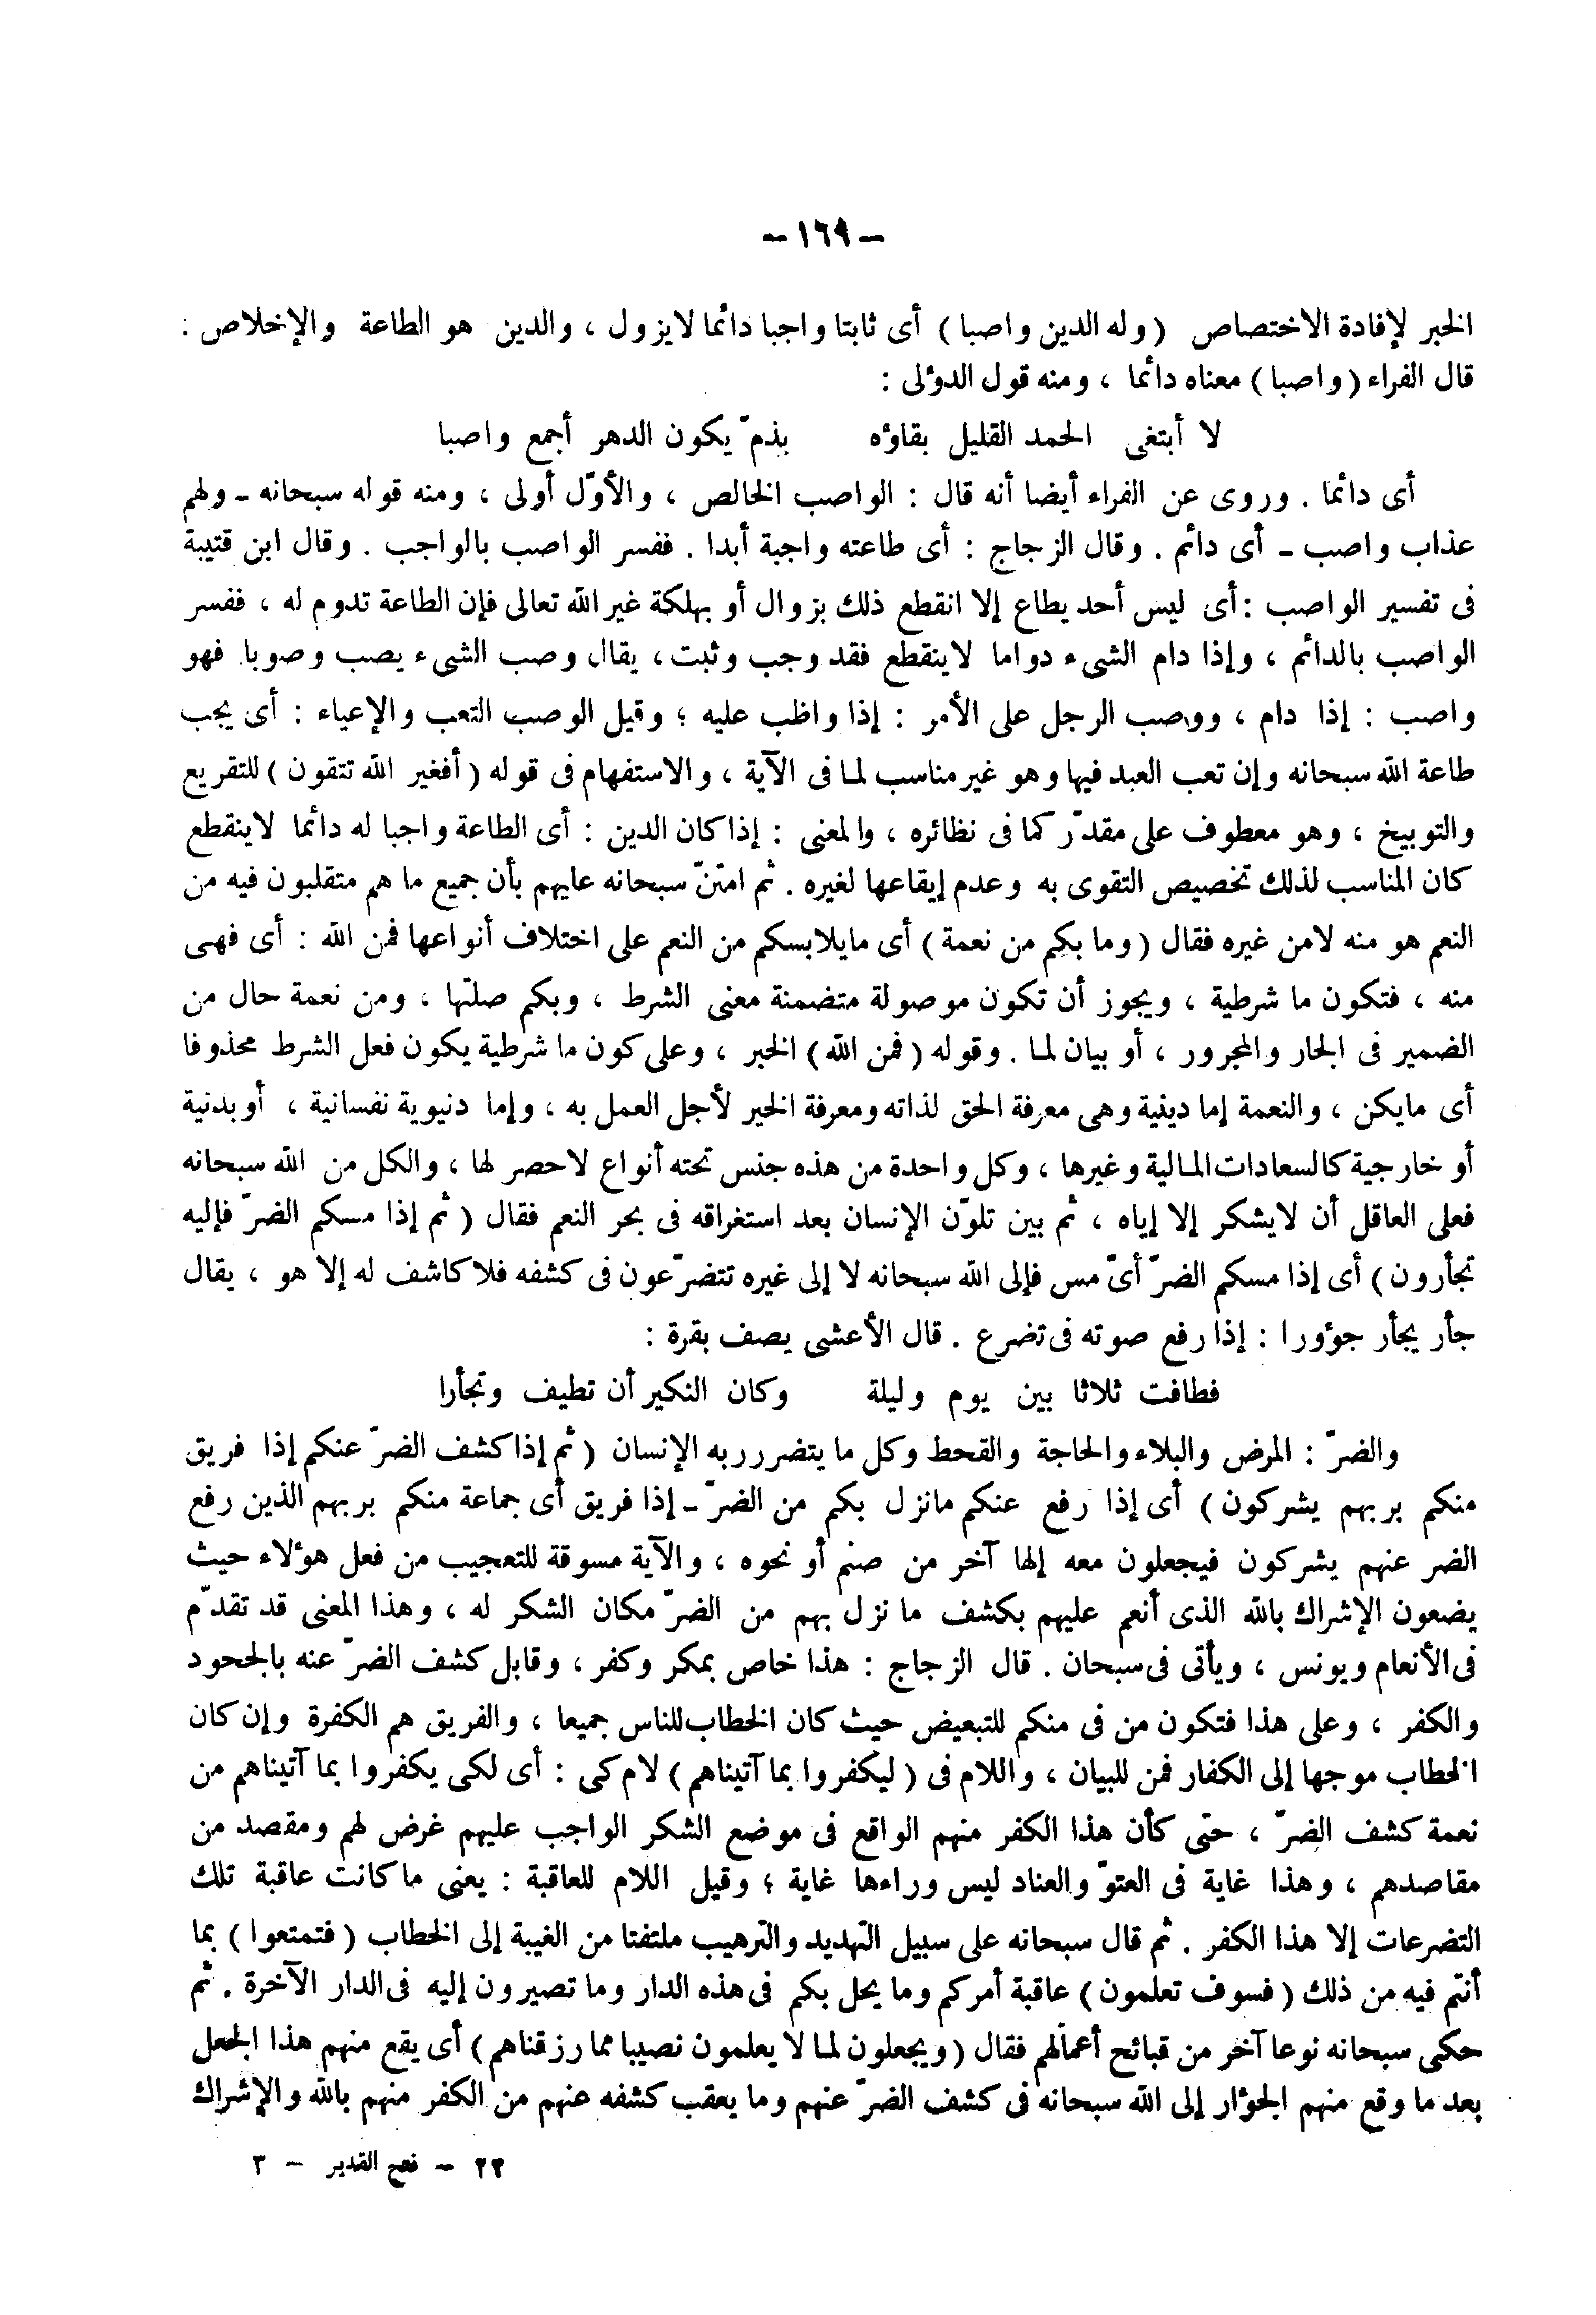 - ١٦٩ -
الخبر لإفادة الاختصاص ( وله الدين واصبا ) أى ثابتا واجبا دائما لايزول ، والدين هو الطاعة والإخلاص .
قال الفراء ( واصبا ) معناه دائما ، ومنه قول الدؤلى :
لا أبتغى الحمد القليل بقاؤه بذمّ يكون الدهر أجمع واصبا
أى دائما . وروى عن الفراء أيضا أنه قال : الواصب الخالص ، والأوّل أولى ، ومنه قوله سبحانه - ولهم
عذاب واصب - أى دائم . وقال الزجاج : أى طاعته واجبة أبدا . ففسر الواصب بالواجب . وقال ابن قتيبة
فى تفسير الواصب : أى ليس أحد يطاع إلا انقطع ذلك بزوال أو بهلكة غير الله تعالى فإن الطاعة تدوم له ، ففسر
الواصب بالدائم ، وإذا دام الشىء دواما لاينقطع فقد وجب وثبت ، يقال وصب الشىء يصب وصوبا فهو
واصب : إذا دام ، ووصب الرجل على الأمر : إذا واظب عليه ؛ وقيل الوصب التعب والإعياء : أى يجب
طاعة الله سبحانه وإن تعب العبد فيها وهو غير مناسب لما فى الآية ، والاستفهام فى قوله ( أفغير الله تتقون ) للتقريع
والتوبيخ ، وهو معطوف على مقدّر كما فى نظائره ، والمعنى : إذا كان الدين : أى الطاعة واجبا له دائما لاينقطع
كان المناسب لذلك تخصيص التقوى به وعدم إيقاعها لغيره . ثم امتنّ سبحانه عليهم بأن جميع ما هم متقلبون فيه من
النعم هو منه لامن غيره فقال ( وما بكم من نعمة ) أى مايلابسكم من النعم على اختلاف أنواعها فمن الله : أى فهى
منه ، فتكون ما شرطية ، ويجوز أن تكون موصولة متضمنة معنى الشرط ، وبكم صلتها ، ومن نعمة حال من
الضمير فى الجار والمجرور ، أو بيان لما . وقوله ( فمن الله ) الخبر ، وعلى كون ما شرطية يكون فعل الشرط محذوفا
أى مايكن ، والنعمة إما دينية وهى معرفة الحق لذاته ومعرفة الخير لأجل العمل به ، وإما دنيوية نفسانية ، أو بدنية
أو خارجية كالسعادات المالية وغيرها ، وكل واحدة من هذه جنس تحته أنواع لاحصر لها ، والكل من الله سبحانه
فعلى العاقل أن لايشكر إلا إياه ، ثم بين تلوّن الإنسان بعد استغراقه فى بحر النعم فقال ( ثم إذا مسكم الضرّ فإليه
تجأرون ) أى إذا مسكم الضرّ أىّ مس فإلى الله سبحانه لا إلى غيره تتضرّعون فى كشفه فلا كاشف له إلا هو ، يقال
جأر يجأر جؤورا : إذا رفع صوته فى تضرع . قال الأعشى يصف بقرة :
فطافت ثلاثا بين يوم وليلة وكان النكير أن تطيف وتجأرا
والضرّ : المرض والبلاء والحاجة والقحط وكل ما يتضرر به الإنسان ( ثم إذا كشف الضرّ عنكم إذا فريق
منكم بربهم يشركون ) أى إذا رفع عنكم مانزل بكم من الضرّ - إذا فريق أى جماعة منكم بربهم الذين رفع
الضر عنهم يشركون فيجعلون معه إلها آخر من صنم أو نحوه ، والآية مسوقة للتعجيب من فعل هؤلاء حيث
يضعون الإشراك بالله الذى أنعم عليهم بكشف ما نزل بهم من الضرّ مكان الشكر له ، وهذا المعنى قد تقدّم
فى الأنعام ويونس ، ويأتى فى سبحان . قال الزجاج : هذا خاص بمكر وكفر ، وقابل كشف الضرّ عنه بالجحود
والكفر ، وعلى هذا فتكون من فى منكم للتبعيض حيث كان الخطاب للناس جميعا ، والفريق هم الكفرة وإن كان
الخطاب موجها إلى الكفار فمن للبيان ، واللام فى ( ليكفروا بما آتيناهم ) لام كى : أى لكى يكفروا بما آتيناهم من
نعمة كشف الضرّ ، حتى كأن هذا الكفر منهم الواقع فى موضع الشكر الواجب عليهم غرض لهم ومقصد من
مقاصدهم ، وهذا غاية فى العتوّ والعناد ليس وراءها غاية ؛ وقيل اللام للعاقبة : يعنى ما كانت عاقبة تلك
التضرعات إلا هذا الكفر . ثم قال سبحانه على سبيل التهديد والترهيب ملتفتا من الغيبة إلى الخطاب ( فتمتعوا ) بما
أنتم فيه من ذلك ( فسوف تعلمون ) عاقبة أمركم وما يحل بكم فى هذه الدار وما تصيرون إليه فى الدار الآخرة . ثم
حكى سبحانه نوعا آخر من قبائح أعمالهم فقال ( ويجعلون لما لا يعلمون نصيبا مما رزقناهم ) أى يقع منهم هذا الجعل
بعد ما وقع منهم الجؤار إلى الله سبحانه فى كشف الضرّ عنهم وما يعقب كشفه عنهم من الكفر منهم بالله والإشراك
٢٢ - فتح القدير - ٣